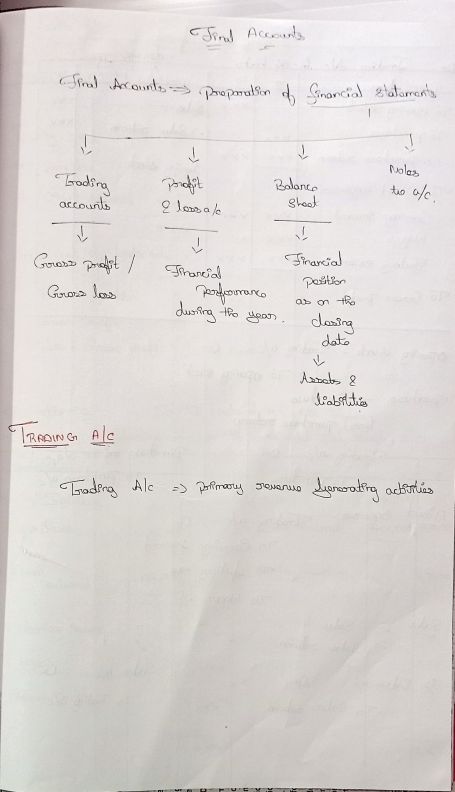 Final Accounts
Final Accounts => Preparation of financial statements
Trading
accounts
Gross profit /
Gross loss
Profit
& loss a/c.
Financial
Performance
during the year.
Balance
Sheet
Financial
position
as on the
closing
date
Assets &
liabilities
Notes
to a/c.
TRADING A/c
Trading A/c => primary revenue generating activities